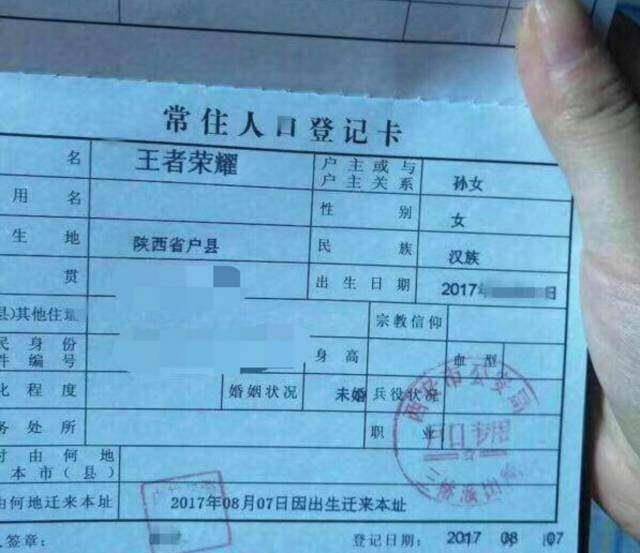 常住人口登记卡
名 王者荣耀 户主或与户主关系 孙女
用名 性别 女
生地 陕西省户县 民族 汉族
贯 出生日期 2017 日
县)其他住址 宗教信仰
民身份件编号 身高 血型
化程度 婚姻状况 未婚 兵役状况
务处所 职业
时由何地本市(县)
由何地迁来本址 2017年08月07日因出生迁来本址
人签章: 登记日期: 2017 08 07
西安市公安局
户口专用